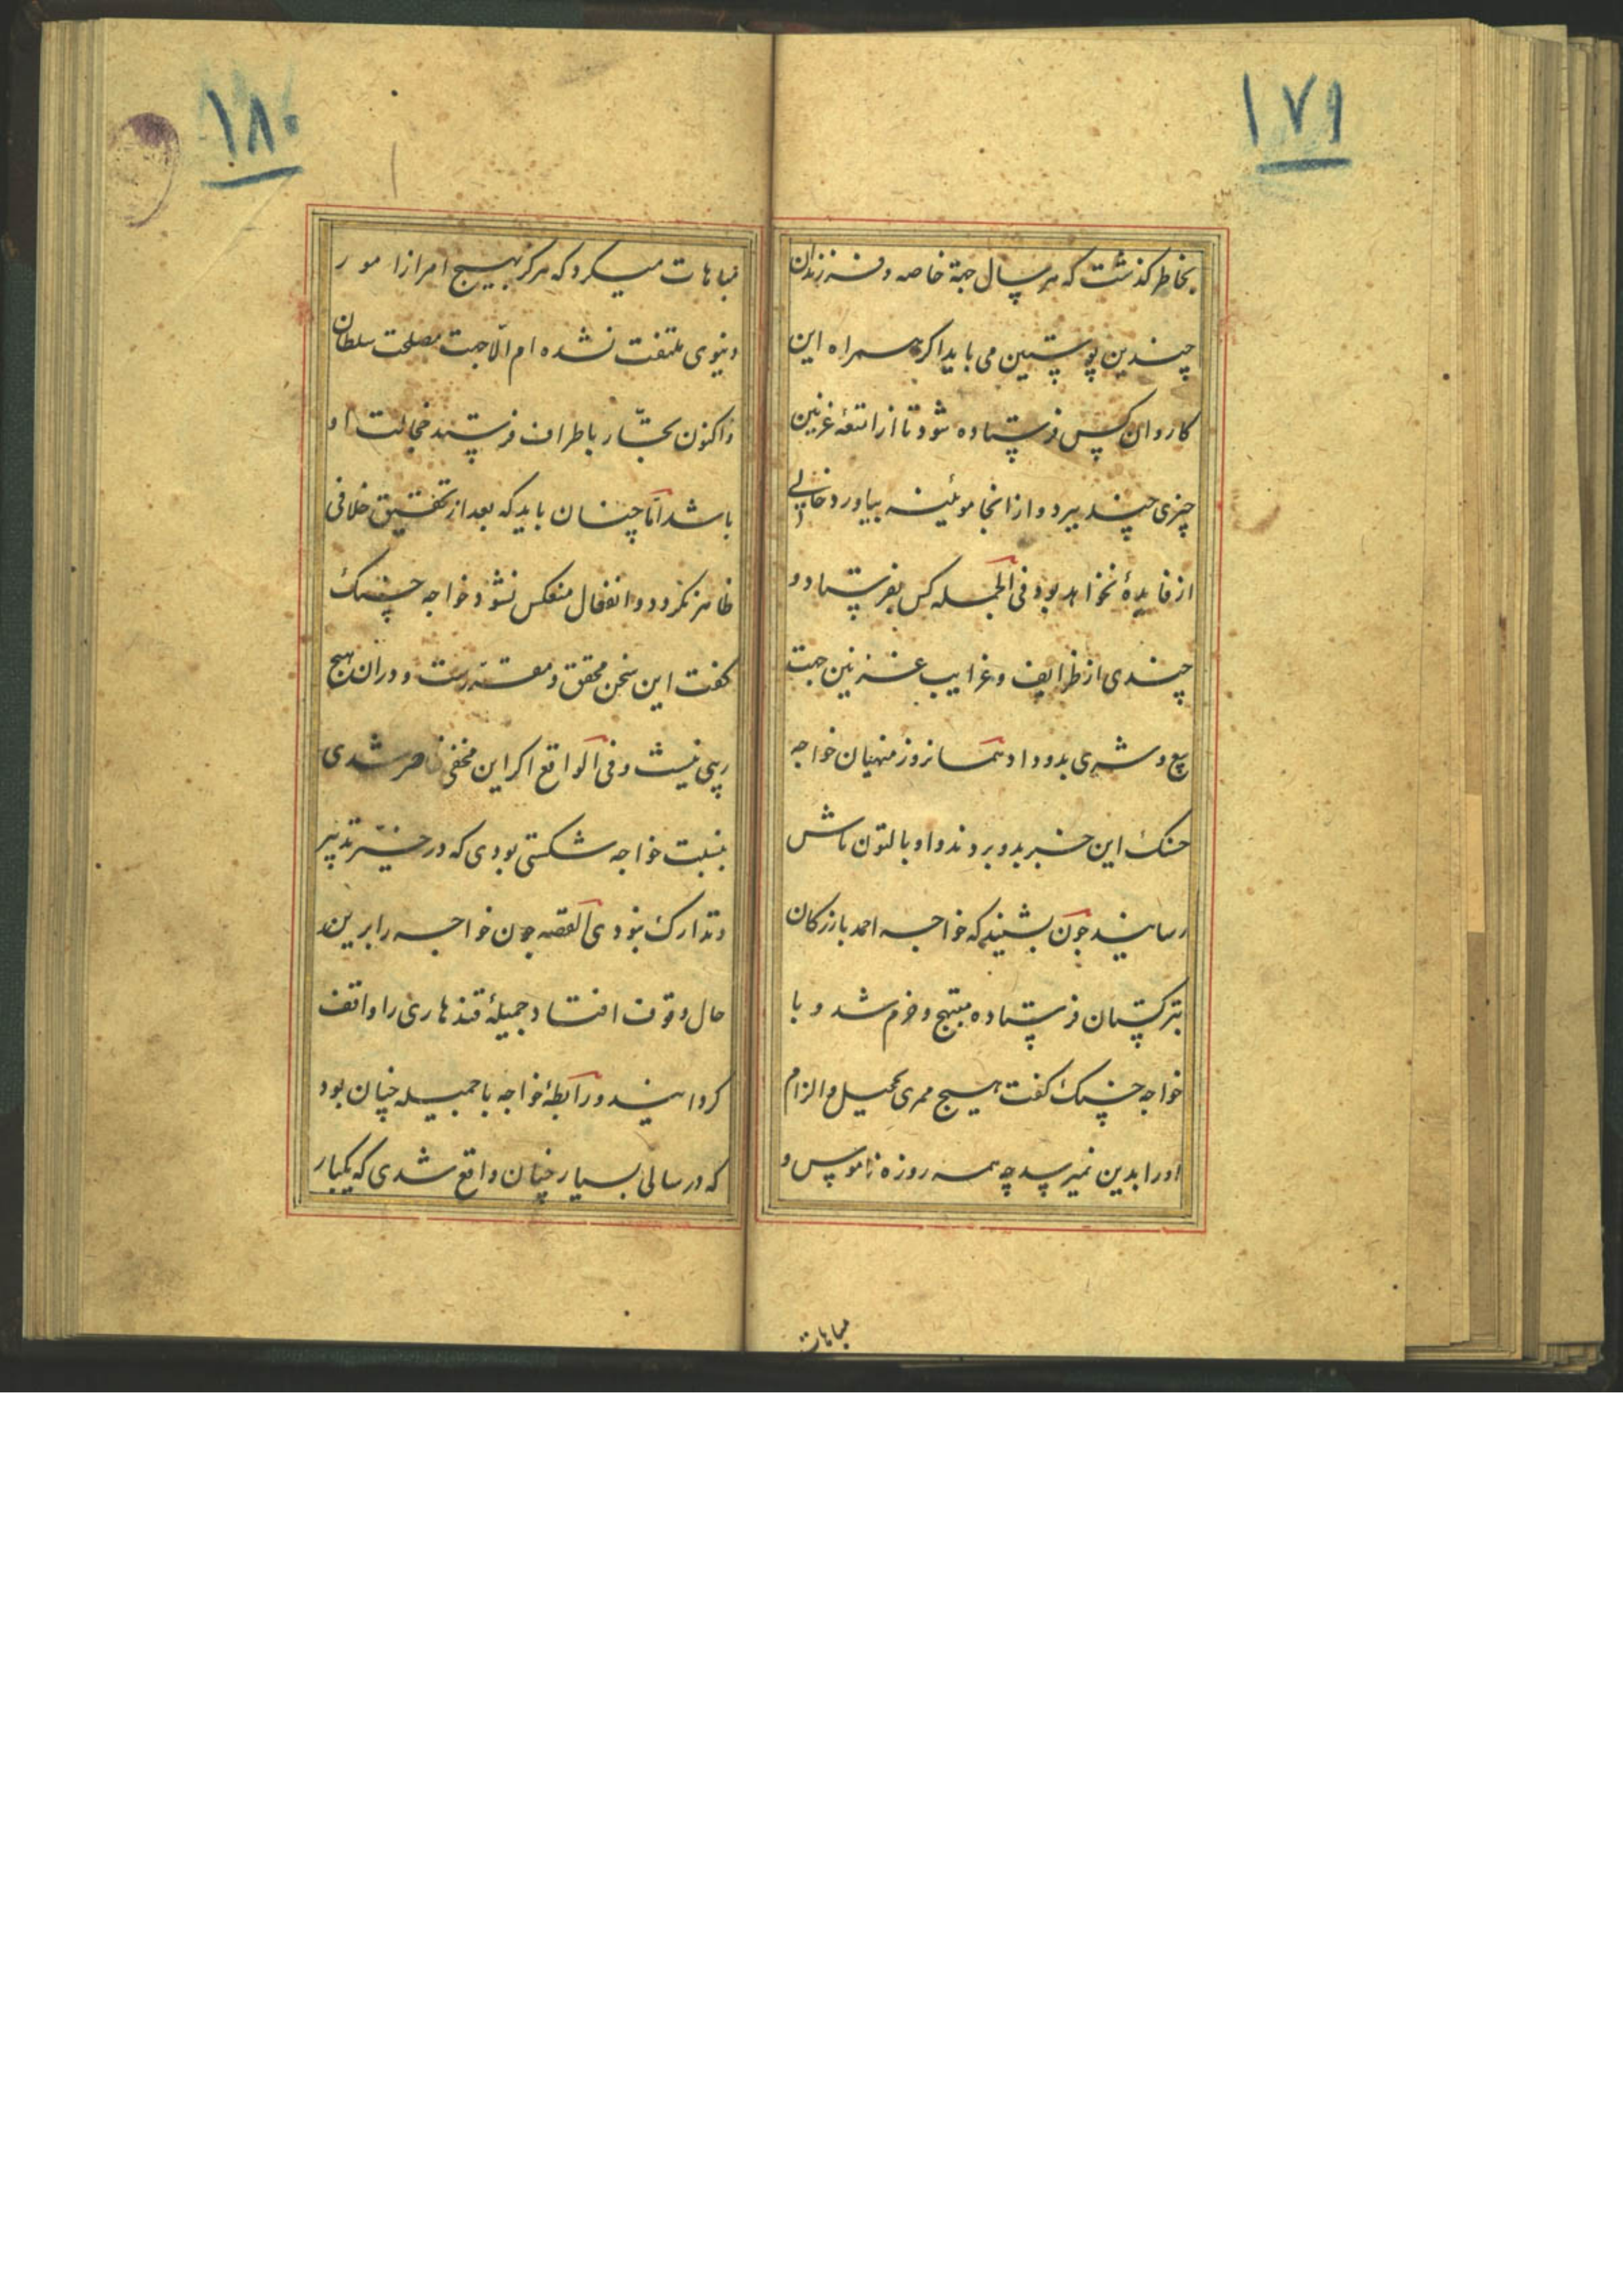 ۱۷۹
بخاطر کذشت که هر سال جهة خاصه و فرزندان
چندین پوستین می باید اکر همراه این
کاروان کس فرستاده شود تا از امتعهٔ غزنین
چیزی چند ببرد و از انجا موئینه بیاورد خالی
از فایدهٔ نخواهد بود فی الجمله کس بفرستاد و
چندی از ظرایف و غرایب غزنین جهت
بیع و شری بدو داد همانروز منهیان خواجه
حسنک این خبر بدو بردند و او بالتون تاش
رسانید چون بشنید که خواجه احمد بازرکان
بترکستان فرستاده مبتهج و خرم شد و با
خواجه حسنک کفت هیچ ممری تخمیل و الزام
اورا بدین نمیرسد چه همه روزه ناموس و
مباهات
۱۸۰
مباهات میکرد که هرکز بهیچ امر از امور
دنیوی ملتفت نشده ام الّا جهت مصلحت سلطان
و اکنون تجّار باطراف فرستد مخالفت او
باشد امّا چنان باید که بعد از تحقیق خلافی
ظاهر نکردد و انفعال منعکس نشود خواجه حسنک
کفت این سخن محقق و مقررست و دران هیچ
ریبی نیست و فی الواقع اکر این مخفی ظاهر شدی
بنسبت خواجه شکستی بودی که در حیّز تدبیر
و تدارک نبودی القصه چون خواجه را برین
حال وقوف افتاد جمیلهٔ قندهاری را واقف
کردانید و رابطهٔ خواجه با جمیله چنان بود
که در سالی بسیار چنان واقع شدی که یکبار